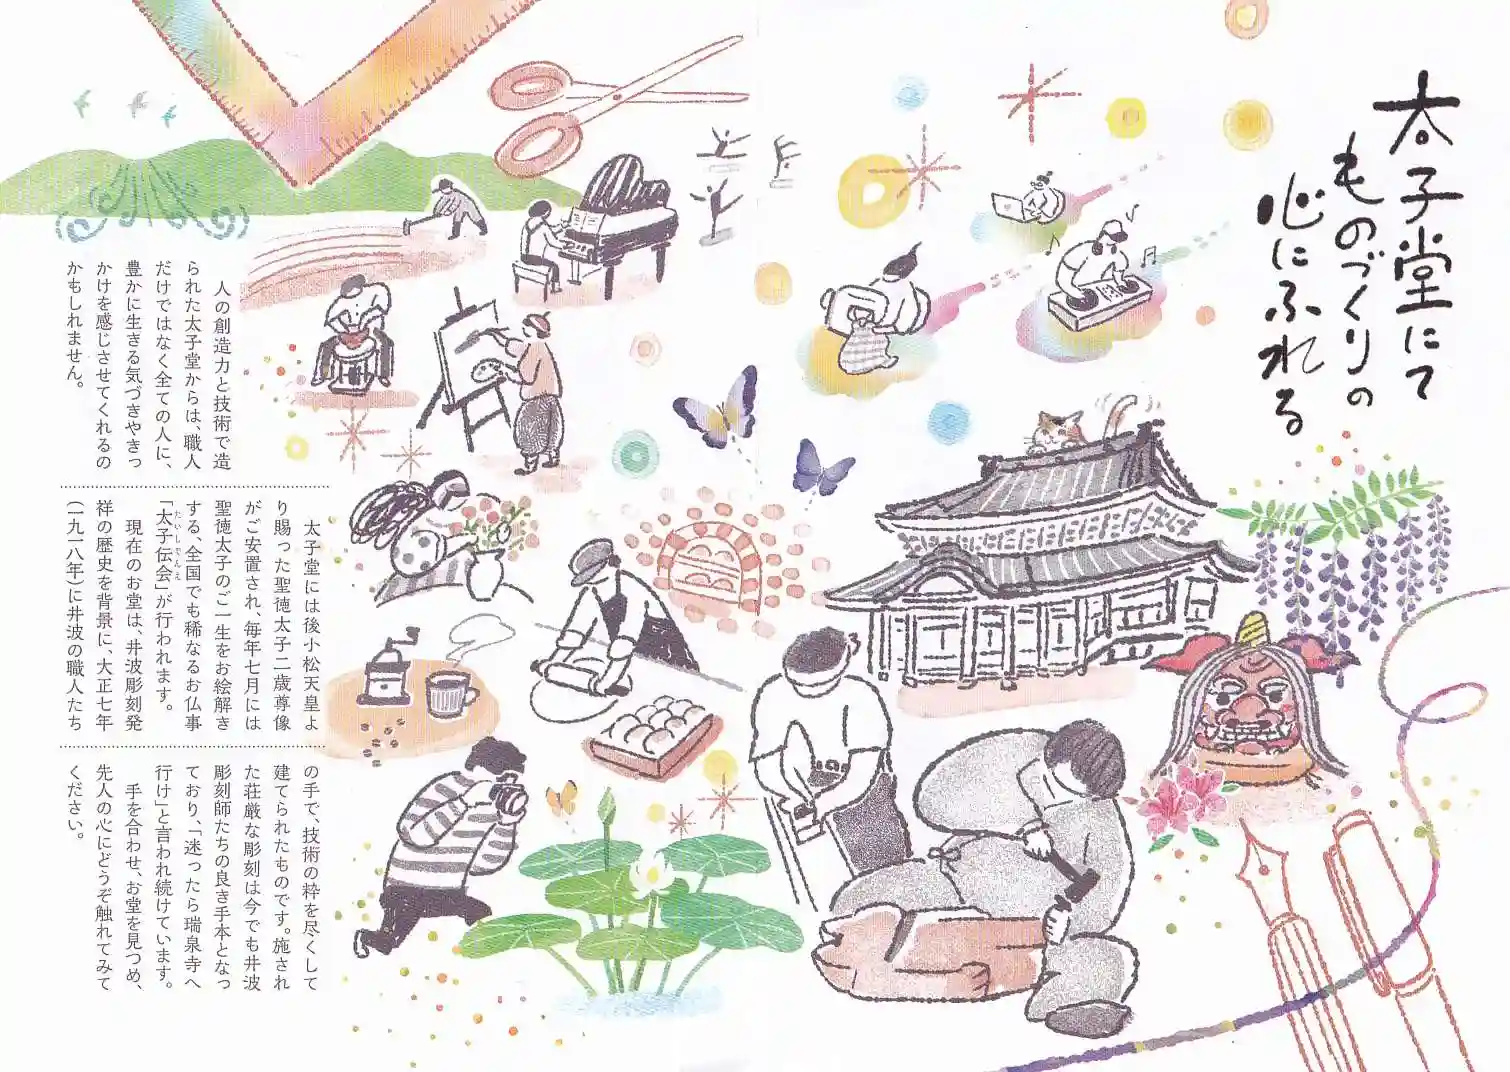 太子堂にて
ものづくりの
心にふれる
人の創造力と技術で造
られた太子堂からは、職人
だけではなく全ての人に、
豊かに生きる気づきやきっ
かけを感じさせてくれるの
かもしれません。
太子堂には後小松天皇よ
り賜った聖徳太子二歳尊像
がご安置され、毎年七月には
聖徳太子のご一生をお絵解き
する、全国でも稀なるお仏事
「太子伝会」が行われます。
たいしでんえ
現在のお堂は、井波彫刻発
祥の歴史を背景に、大正七年
(一九一八年)に井波の職人たち
の手で、技術の粋を尽くして
建てられたものです。施され
た荘厳な彫刻は今でも井波
彫刻師たちの良き手本となっ
ており、「迷ったら瑞泉寺へ
行け」と言われ続けています。
手を合わせ、お堂を見つめ、
先人の心にどうぞ触れてみて
ください。